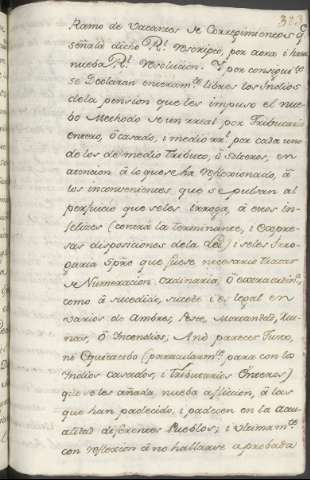 313
Ramo de vacantes de Corregimientos q.
señala dicho R.l Rescripto, por aora i hasta
nueba R.l Resolucion. Y por consiguite
se Declaran enteram.te libres los Indios
dela pension que les impuso el nue-
bo Methodo de un rreal por Tributario
entero, ô casado, i medio rr.l por cada uno
de los de medio Tributo, ô Solteros, en
atencion â lo que se ha reflexionado, â
los inconvenientes que se pulsan al
perjuicio que seles irroga, â estos in-
felices (contra la terminante, i Expre-
sas disposiciones dela Lei) i seles Irro-
garia Spre que fuese necesario tratar
de Numeracion ordinaria, ô extraordin.a,
como â sucedido, sucede i es legal en
varios de Ambres, Peste, Mortandad, Rui-
nas, ô Incendios, And parecer Justo,
ni Equitatibo (particularm.te para con los
Indios casados, i tributarios Enteros)
que se les añada nueba afliccion, â las
que han padecido, i padecen en la Actu-
alidad diferentes Pueblos; i ultimam.te
con reflexion â no hallarse aprobada